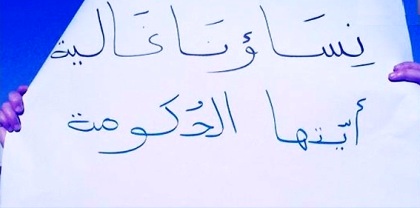 نِسَاؤنَا غَالية
أيّتها الحُكومة